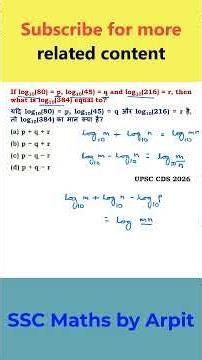 Subscribe for more
related content
If log₁₀(80) = p, log₁₀(45) = q and log₁₀(216) = r, then
what is log₁₀(384) equal to?
यदि log₁₀(80) = p, log₁₀(45) = q और log₁₀(216) = r है,
तो log₁₀(384) का मान क्या है?
(a) p + q + r
(b) p + q − r
(c) p − q − r
(d) p − q + r
log₁₀ m + log₁₀ n = log₁₀ mn
log₁₀ m − log₁₀ n = log₁₀ m/n
UPSC CDS 2026
log₁₀ m + log₁₀ n − log₁₀ p
= log mn
SSC Maths by Arpit